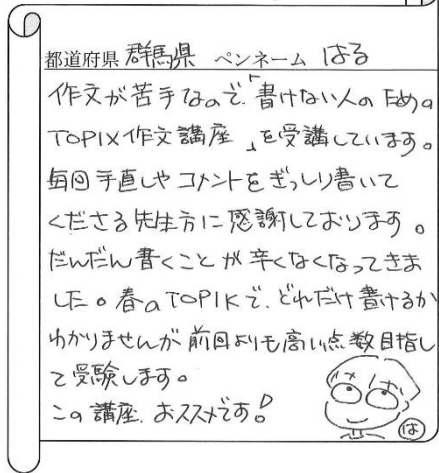 都道府県 群馬県 ペンネーム はる
作文が苦手なので、「書けない人のための
TOPIX作文講座」を受講しています。
毎回手直しやコメントをぎっしり書いて
くださる先生方に感謝しております。
だんだん書くことが辛くなくなってきま
した。春のTOPIKで、どれだけ書けるか
わかりませんが前回よりも高い点数目指し
て受験します。
この講座、おススメです!
は